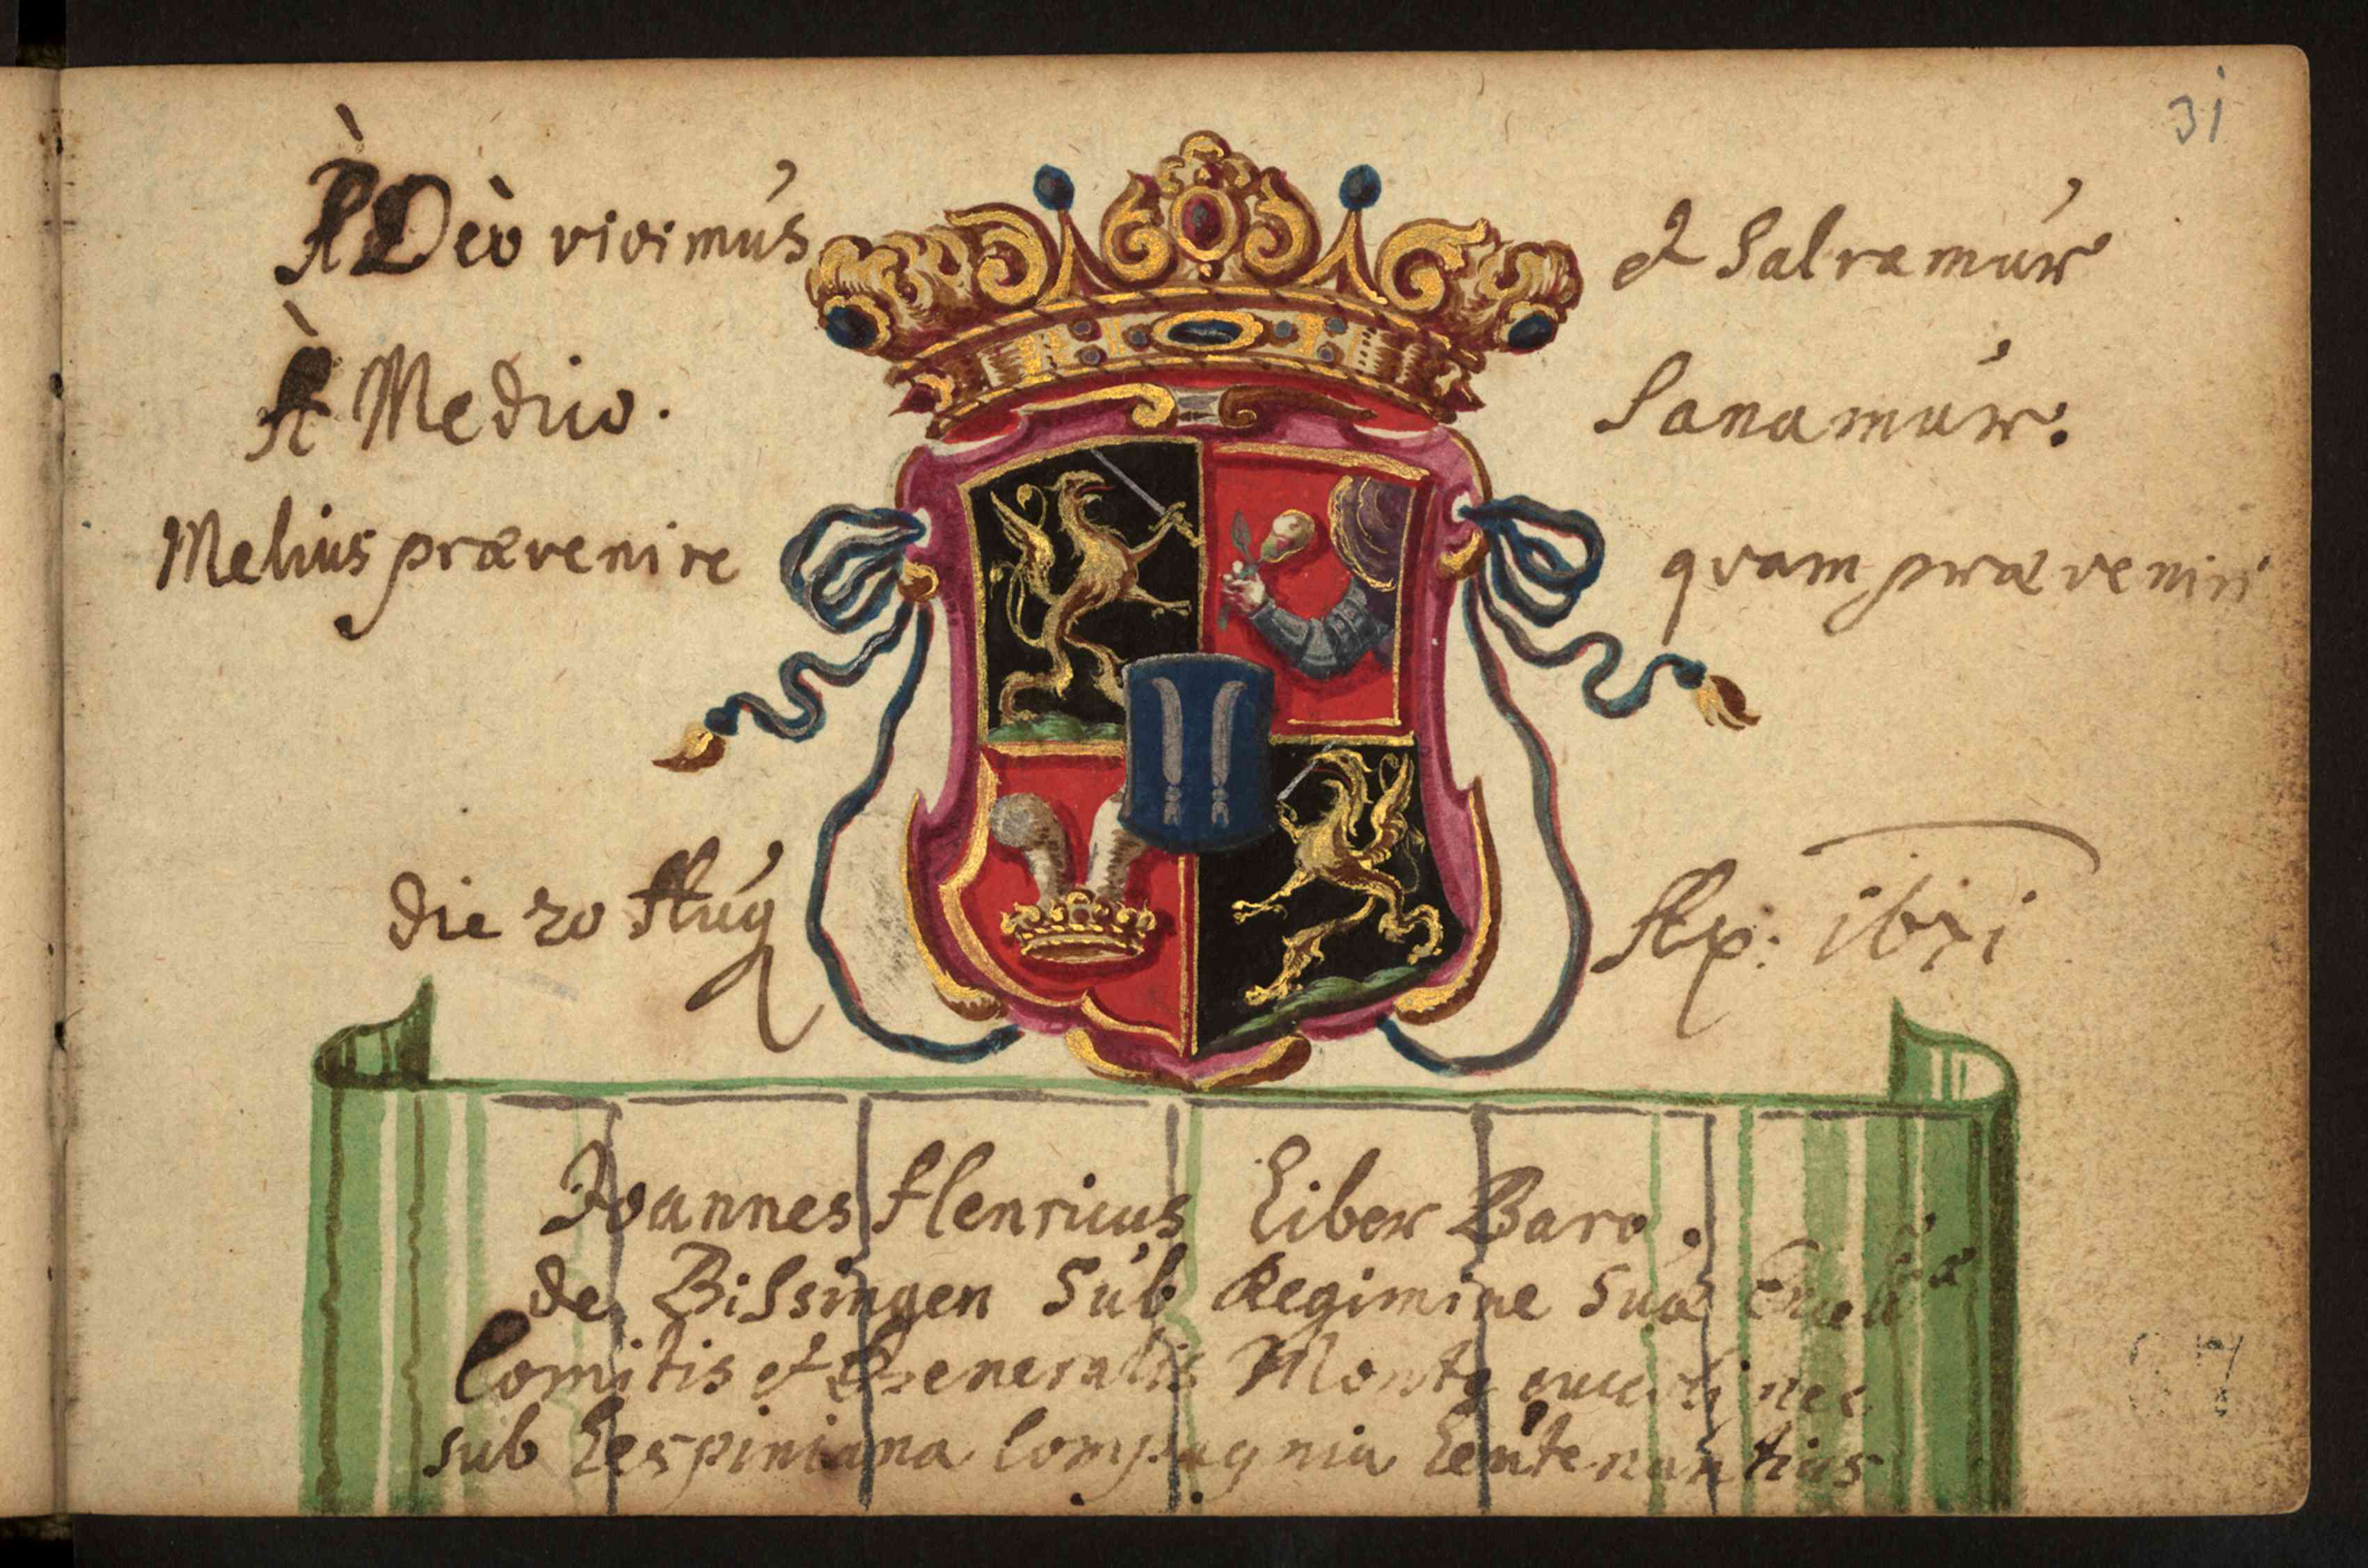 31
À Deò vivimus et Salvamur
À Medico. Sanamur.
Melius prævenire quam præveniri
die 20 Aug Ap: 1671
Joannes Henricus Liber Baro.
de Bissingen Sub Regimine Suæ
Comitis et Generalis
sub Lespiniana Compagnia Leutenantius